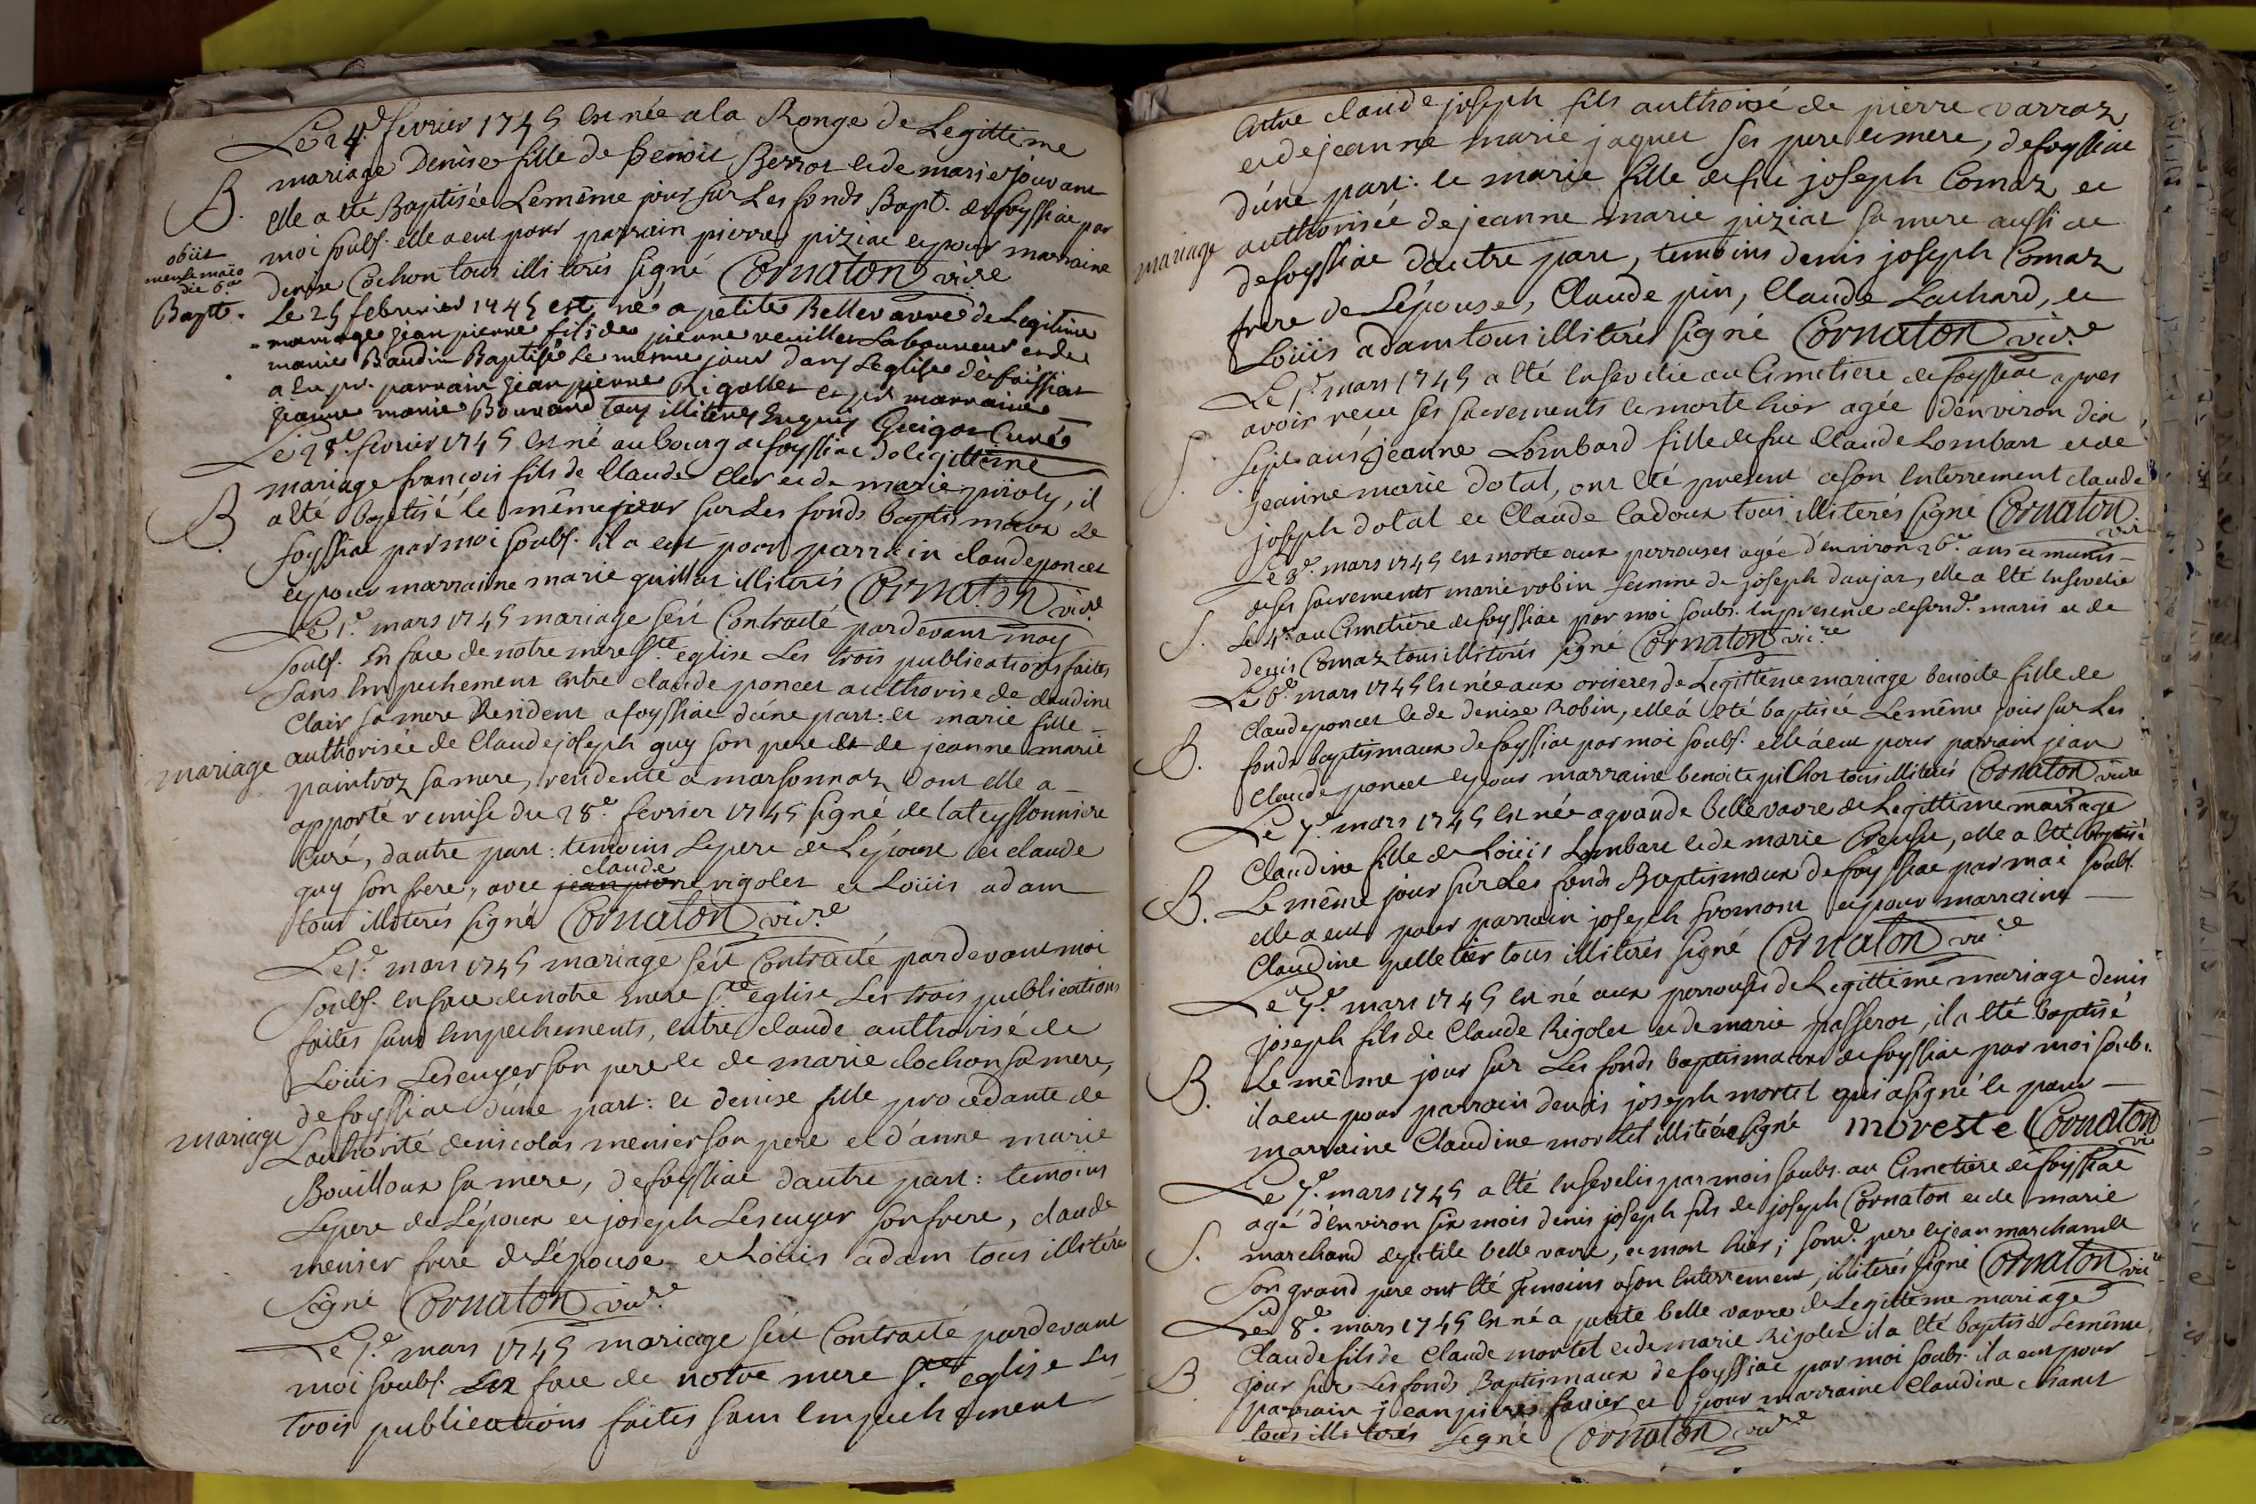 Le 24.e fevrier 1745 est née a la Ronge de Legitteme
B. mariage Denise fille de Benoit Berrot et de marie jouvant
elle a été Baptisée Le même jour sur Les fonds Bapt. de foyssiac par
moi soubs. elle a eut pour parrain pierre piziat et pour marraine
obiit
mense maio
die 6a
denise Cochon tous illiterés signé Cornaton vicre
Bapt. Le 25 februrier 1745 est né a petite Bellevavre de Legitime
mariage jean pierre fils de pierre veuillet Laboureur et de
marie Baudin Baptisé Le meme jour dans Leglise de foissiat
a Eu pr. parrain jean pierre Rigollet et pr. marraine
jeanne marie Bouvard tous illiterés Enquis Guigot Curé
Le 28.e fevrier 1745 est né au bourg de foyssiac de legitteme
mariage françois fils de Claude Cler et de marie piroly, il
B. a été baptisé le même jour sur Les fonds baptismaux de
foyssiac par moi soubs. il a eut pour parrain claude poncet
et pour marraine marie guillot illiterés Cornaton vicre
Le 1.e mars 1745 mariage feut Contracté pardevant moy
soubs. En face de notre mere Ste eglise Les trois publications faites
sans Empechement entre claude poncet authorise de claudine
Clair sa mere Resident a foyssiac d'une part: et marie fille
mariage authorisée de Claude joseph guy son pere et de jeanne marie
paintroz sa mere, residente a marsonnaz dont elle a
apporté remise du 28.e fevrier 1745 signé de lateyssonniere
Curé, dautre part: temoins Le pere de L'épouse et claude
claude
guy son frere, avec jean pierre rigolet et Loüis adam
tous illiterés signé Cornaton vicre
Le 1.e mars 1745 mariage feut Contracté pardevant moi
soubs. en face de notre mere Ste eglise Les trois publications
faites sans Empechements, entre claude authorisé de
Loüis Lescuyer son pere et de marie clochon sa mere,
de foyssiac d'une part: et denise fille procedante de
mariage L'authorité de nicolas menier son pere et d'anne marie
Bouilloux sa mere, de foyssiac dautre part: temoins
Le pere de L'époux et joseph Lescuyer son frere, claude
menier frere de L'épouse et Loüis adam tous illiterés
signé Cornaton vicre
Le 1.e mars 1745 mariage feut Contracté pardevant
moi soubs. En face de notre mere Ste eglise Les
trois publications faites sans Empechement
Entre claude joseph fils authorisé de pierre varraz
et de jeanne marie jaquet ses pere et mere, de foyssiac
d'une part: et marie fille de feu joseph Comaz et
mariage authorisée de jeanne marie piziat sa mere aussi de
de foyssiac dautre part, temoins denis joseph Comaz
frere de L'épouse, Claude pin, Claude Lachard, et
Loüis adam tous illiterés signé Cornaton vicre
Le 1.e mars 1745 a été Ensevelie au Cimetiere de foyssiac apres
avoir reçu ses sacrements et morte hier agée d'environ dix
S. sept ans jeanne Lombard fille de feu Claude Lombart et de
jeanne marie dotal, ont été present a son Enterrement claude
joseph dotal et Claude Cadoux tous illiterés signé Cornaton
vicre
Le 3.e mars 1745 est morte aux perrouses agée d'environ 26.e ans et munis
de ses sacrements marie robin femme de joseph daujat, elle a été Ensevelie
S. Le 4.e au Cimetiere de foyssiac par moi soubs. En presence de sond. maris et de
denis Comaz tous illiterés signé Cornaton vicre
Le 6.e mars 1745 est née aux orcieres de Legitteme mariage benoite fille de
claude poncet et de denise Robin, elle á été baptisée Le même jour sur Les
B. fonds baptismaux de foyssiac par moi soubs. elle á eut pour parrain jean
Claude poncet et pour marraine benoite pichot tous illiterés Cornaton vicre
Le 7.e mars 1745 est née a grande bellevavre de Legitteme mariage
Claudine fille de Loüis Lombart et de marie Creuse, elle a été baptisée
B. Le même jour sur Les fonds Baptismaux de foyssiac par moi soubs.
elle a eut pour parrain joseph fromont et pour marraine
Claudine pelletier tous illiterés signé Cornaton vicre
Le 7.e mars 1745 est né aux perrouses de Legitteme mariage denis
joseph fils de Claude Rigolet et de marie passerot, il a été baptisé
B. Le même jour sur Les fonds baptismaux de foyssiac par moi soubs.
il a eut pour parrain denis joseph mortel qui a signé et pour
marraine Claudine mortel illiterée signé moreste Cornaton
vicre
Le 7.e mars 1745 a été Ensevelis par moi soubs. au Cimetiere de foyssiac
agé d'environ six mois denis joseph fils de joseph Cornaton et de marie
S. marchand de petite belle vavre, et mort hier; sond. pere et jean marchand
son grand pere ont été temoins a son Enterrement, illiterés signé Cornaton vicre
Le 8.e mars 1745 est né a petite belle vavre de Legitteme mariage
Claude fils de Claude mortel et de marie Rigolet il a été baptisé Le même
B jour sur Les fonds Baptismaux de foyssiac par moi soubs. il a eut pour
parrain jean pierre favier et pour marraine Claudine chanel
tous illiterés signé Cornaton vicre